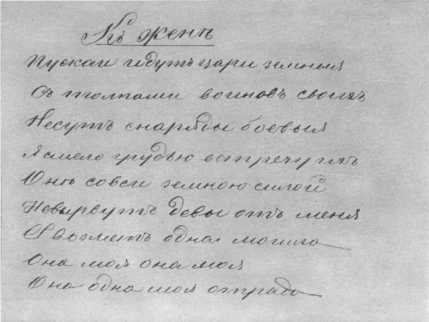 Къ женѣ
Пускай идутъ цари земныя
Съ толпами воиновъ своихъ
Несутъ снаряды боевыя
Я смело грудью встречу ихъ
Онѣ совсей земною силой
Невырвутъ девы отъ меня
Я возметъ одна могила
Она моя она моя
Она одна моя отрада